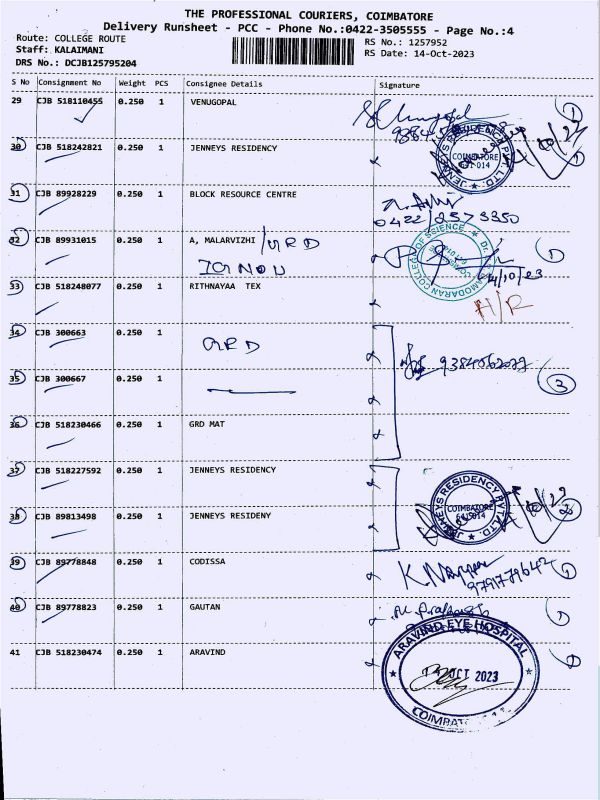 THE PROFESSIONAL COURIERS, COIMBATORE
Delivery Runsheet - PCC - Phone No.:0422-3505555 - Page No.:4
Route: COLLEGE ROUTE
RS No.: 1257952
Staff: KALAIMANI
RS Date: 14-Oct-2023
DRS No.: DCJB125795204
S No Consignment No Weight PCS Consignee Details Signature
29 CJB 518110455 0.250 1 VENUGOPAL
30 CJB 518242821 0.250 1 JENNEYS RESIDENCY
JENNEYS RESIDENCY PVT. LTD.
COIMBATORE
641 014
31 CJB 89928229 0.250 1 BLOCK RESOURCE CENTRE
0422/2573350
32 CJB 89931015 0.250 1 A, MALARVIZHI / GRD
IGNOU
14/10/23
33 CJB 518248077 0.250 1 RITHNAYAA TEX
H/R
34 CJB 300663 0.250 1
GRD
35 CJB 300667 0.250 1
3
36 CJB 518230466 0.250 1 GRD MAT
37 CJB 518227592 0.250 1 JENNEYS RESIDENCY
JENNEYS RESIDENCY PVT. LTD.
COIMBATORE
641 014
38 CJB 89813498 0.250 1 JENNEYS RESIDENY
2
39 CJB 89778848 0.250 1 CODISSA
9791779642 1
40 CJB 89778823 0.250 1 GAUTAN
1
41 CJB 518230474 0.250 1 ARAVIND
1
ARAVIND EYE HOSPITAL
14 OCT 2023